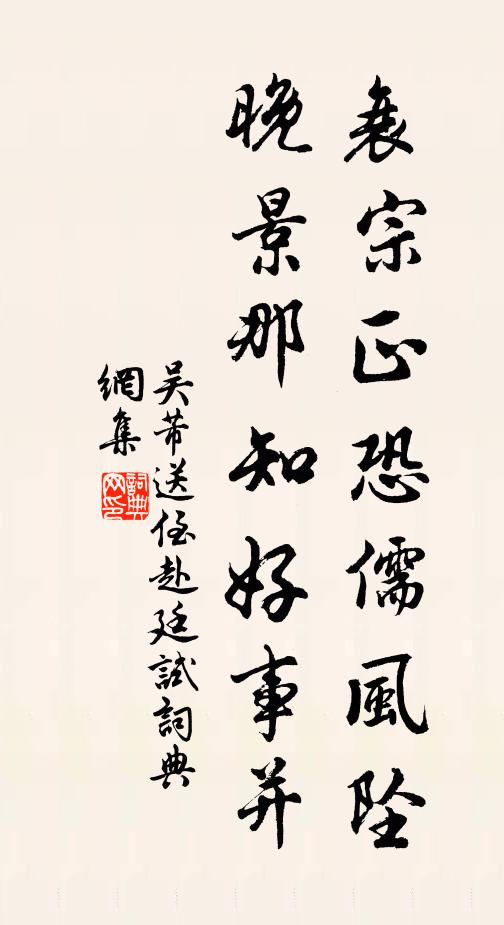 衰宗正恐儒風墜
晚景那知好事并
吴芾送侄赴廷試詞典
網集
詞典
网印